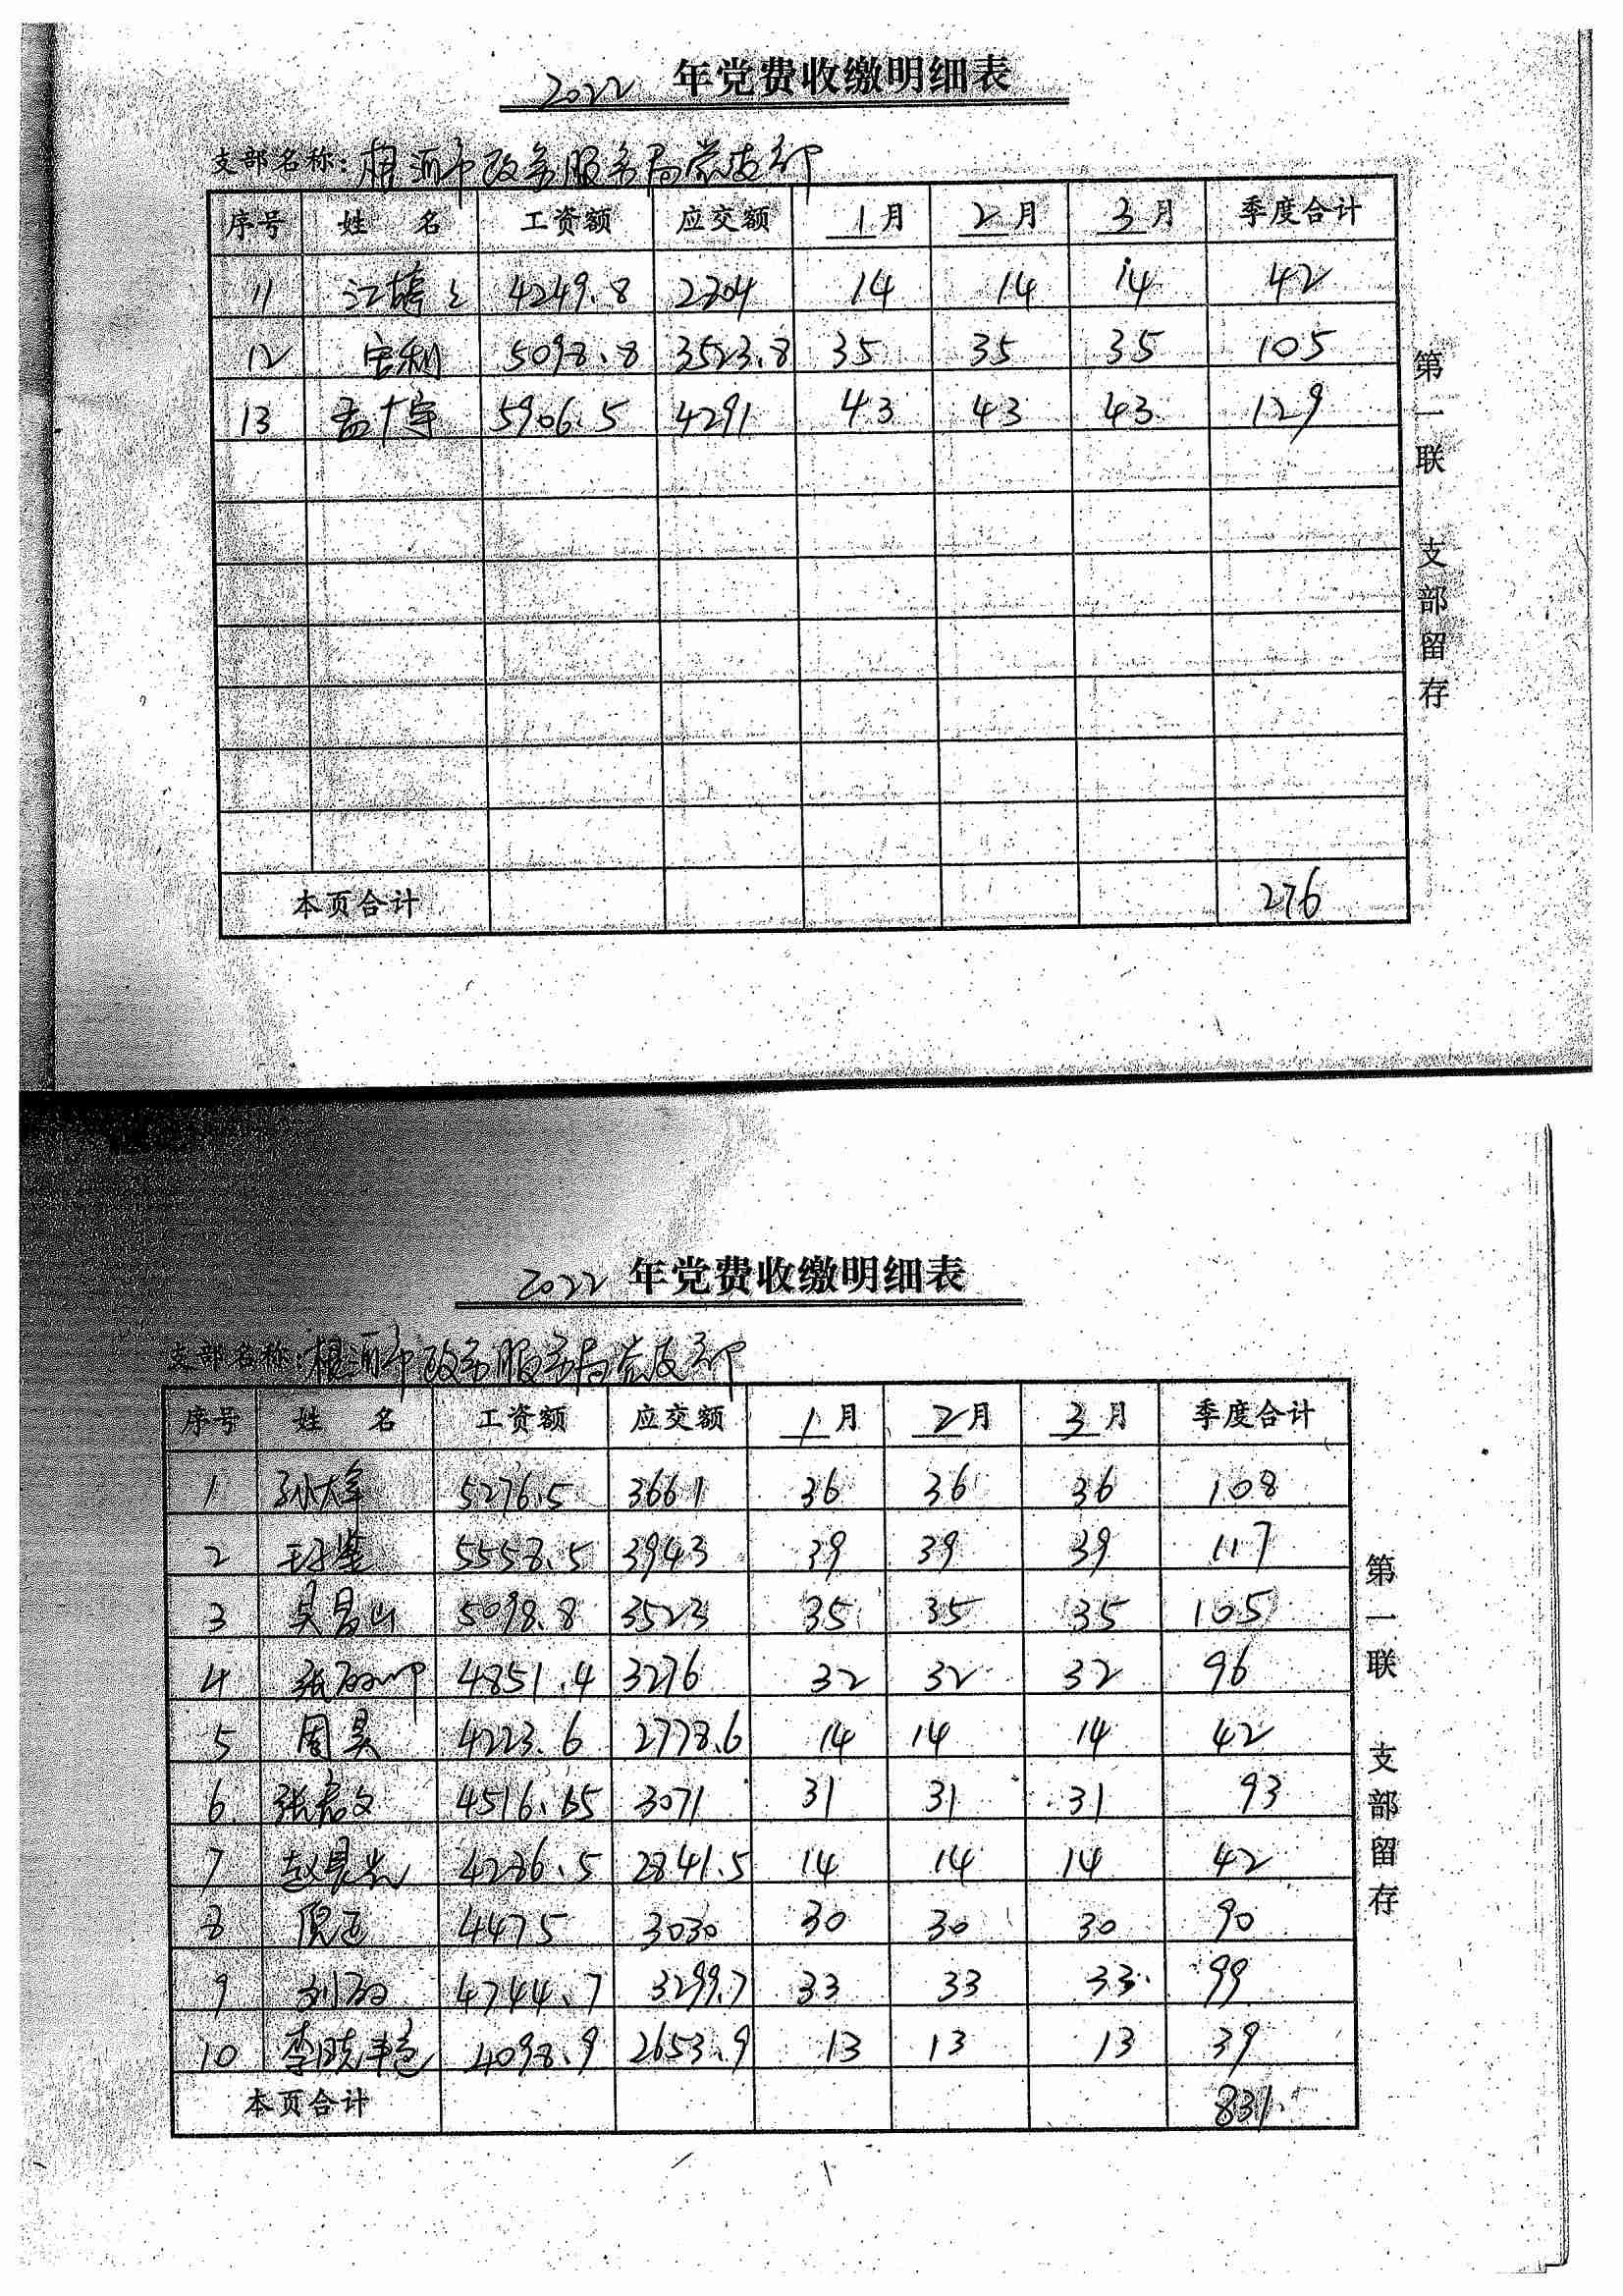 2022 年党费收缴明细表
支部名称: 根河市政务服务局党支部
序号 姓名 工资额 应交额 1月 2月 3月 季度合计
11 4249.8 2304 14 14 14 42
12 宝利 5098.8 3523.8 35 35 35 105
13 孟十字 5906.5 4291 43 43 43 129
本页合计 276
第一联 支部留存
2022 年党费收缴明细表
支部名称: 根河市政务服务局党支部
序号 姓名 工资额 应交额 1月 2月 3月 季度合计
1 孙大军 5276.5 3661 36 36 36 108
2 5558.5 3943 39 39 39 117
3 5098.8 3523 35 35 35 105
4 4851.4 3276 32 32 32 96
5 周昊 4223.6 2778.6 14 14 14 42
6 张彦文 4516.65 3071 31 31 31 93
7 4286.5 2841.5 14 14 14 42
8 4475 3030 30 30 30 90
9 4744.7 3299.7 33 33 33 99
10 4098.9 2653.9 13 13 13 39
本页合计 831
第一联 支部留存